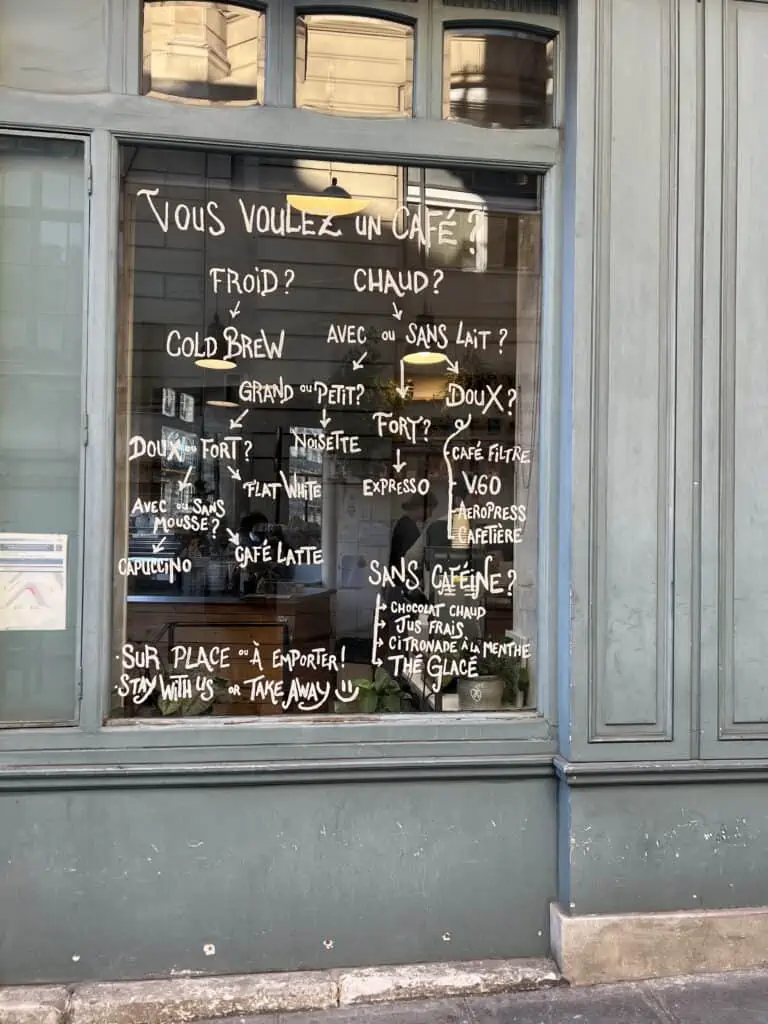 VOUS VOULEZ UN CAFÉ ?
FROID ? CHAUD ?
COLD BREW
AVEC OU SANS LAIT ?
GRAND OU PETIT ?
DOUX ?
FORT ?
DOUX OU FORT ?
NOISETTE
CAFÉ FILTRE
FLAT WHITE
EXPRESSO
V.60
AVEC OU SANS
MOUSSE ?
AEROPRESS
CAFETIÈRE
CAPUCCINO
CAFÉ LATTE
SANS CAFÉINE ?
CHOCOLAT CHAUD
JUS FRAIS
CITRONADE À LA MENTHE
THÉ GLACÉ
· SUR PLACE OU À EMPORTER !
· STAY WITH US OR TAKE AWAY